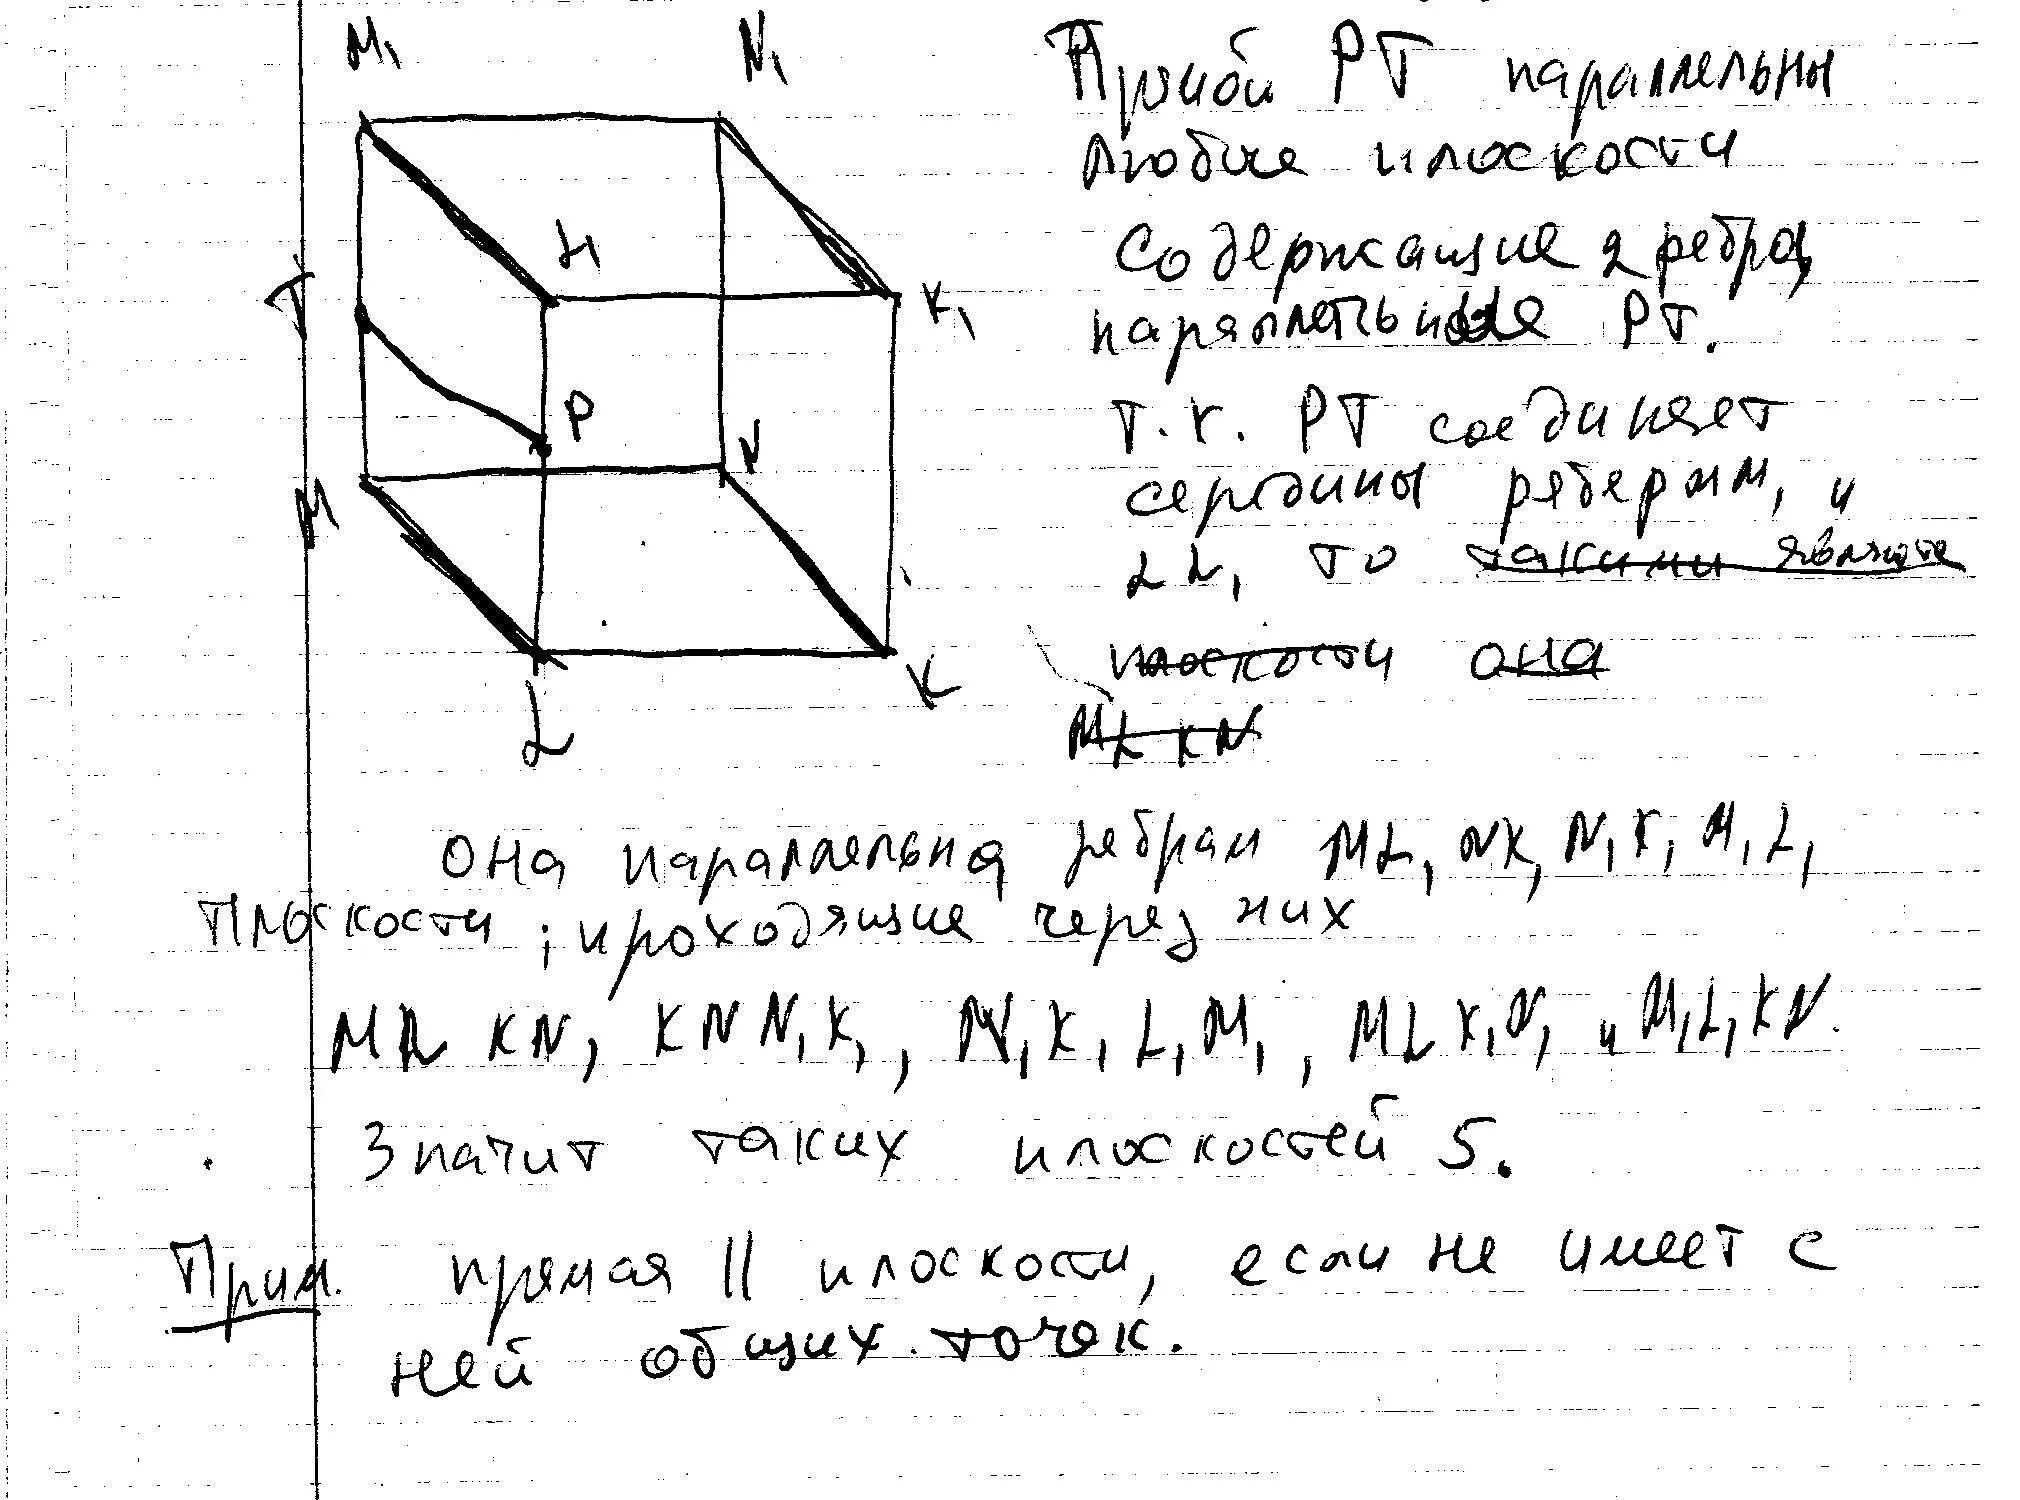 M₁
N₁
L₁
K₁
T
P
M
N
L
K
Прямой РТ параллельны
любые плоскости
содержащие 2 ребра,
параллельные РТ.
Т.к. РТ соединяет
середины и
LL₁ то такими являются
плоскости она
ML KN
она параллельна ребрам ML, NK, N₁K₁ M₁L₁
плоскости, проходящие через них
ML KN, KN N₁K₁, N₁K₁L₁M₁, ML K₁N₁ и M₁L₁KN.
Значит таких плоскостей 5.
Прим. прямая || плоскости, если не имеет с
ней общих точек.